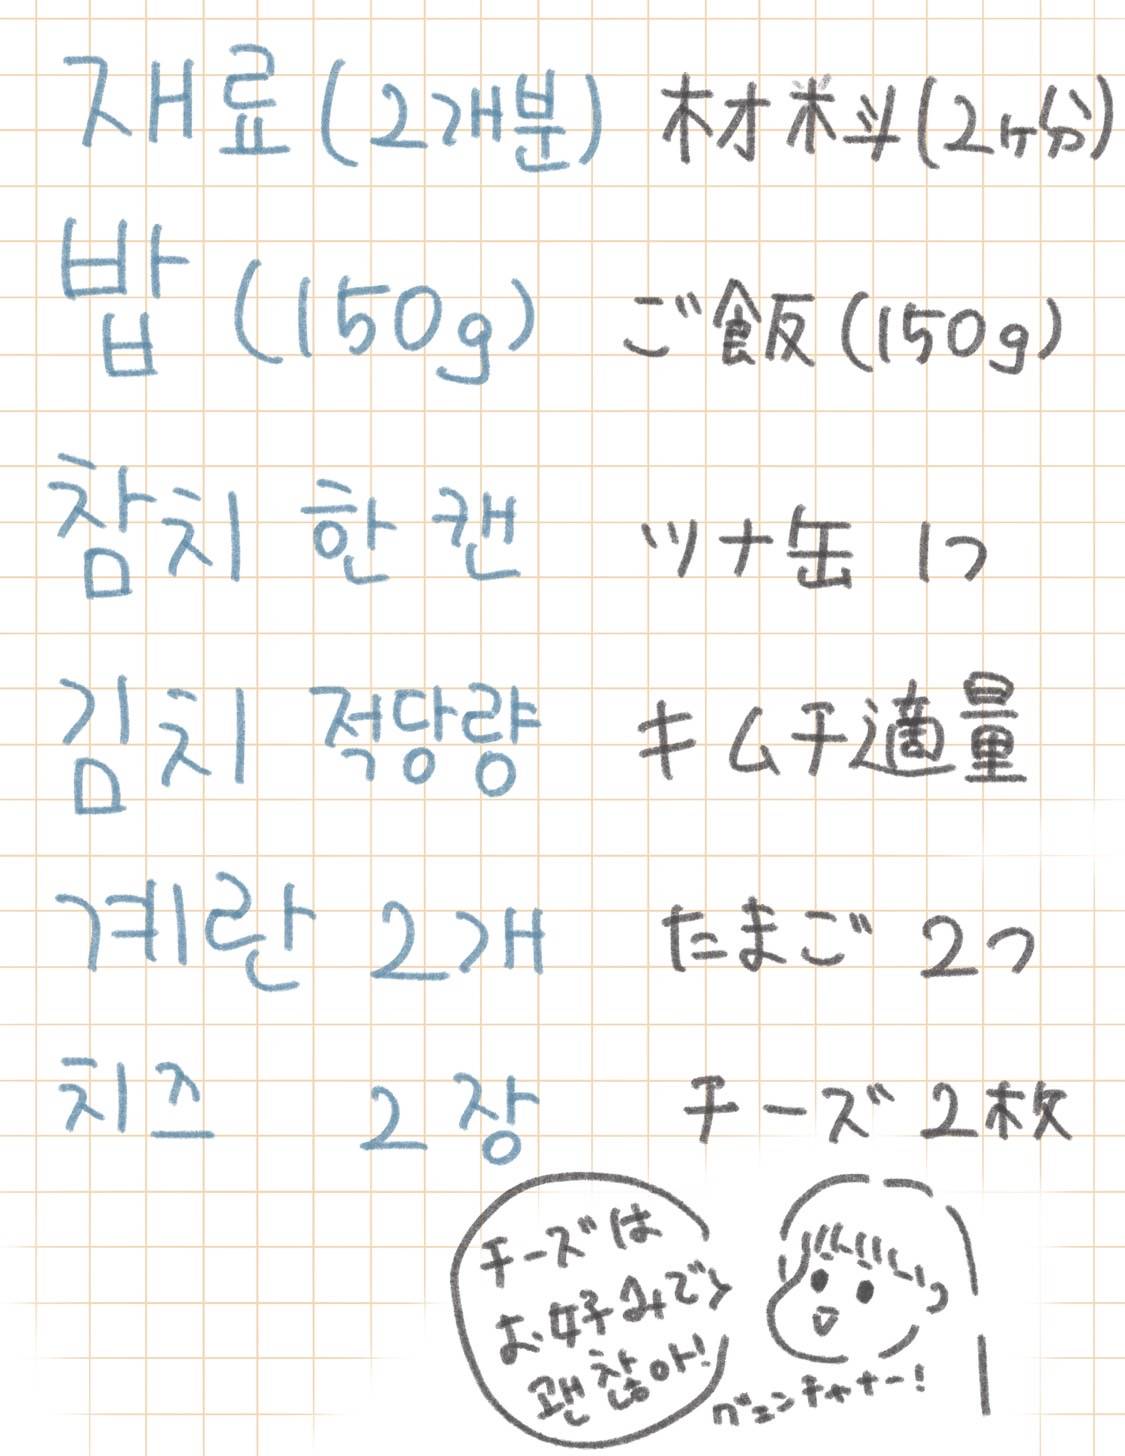 재료(2개분) 材料(2ヶ分)
밥(150g) ご飯(150g)
참치 한 캔 ツナ缶 1つ
김치 적당량 キムチ適量
계란 2개 たまご 2つ
치즈 2장 チーズ 2枚
チーズは
お好みで
괜찮아!
グェンチャナー!